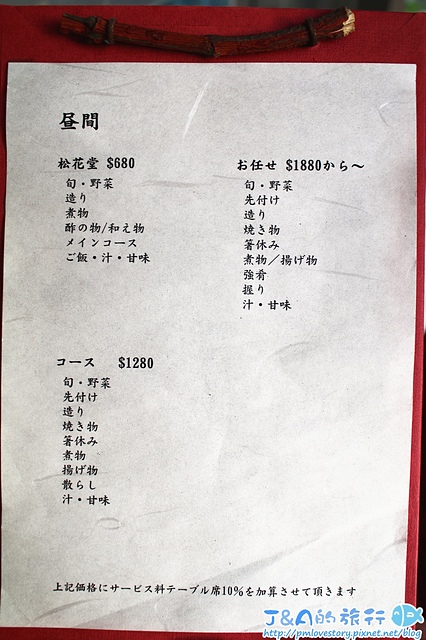 昼間
松花堂 $680
旬・野菜
造り
煮物
酢の物/和え物
メインコース
ご飯・汁・甘味
お任せ $1880から〜
旬・野菜
先付け
造り
焼き物
箸休み
煮物／揚げ物
強肴
握り
汁・甘味
コース $1280
旬・野菜
先付け
造り
焼き物
箸休み
煮物
揚げ物
散らし
汁・甘味
上記価格にサービス料テーブル席10%を加算させて頂きます
J&A的旅行
http://pmlovestory.pixnet.net/blog